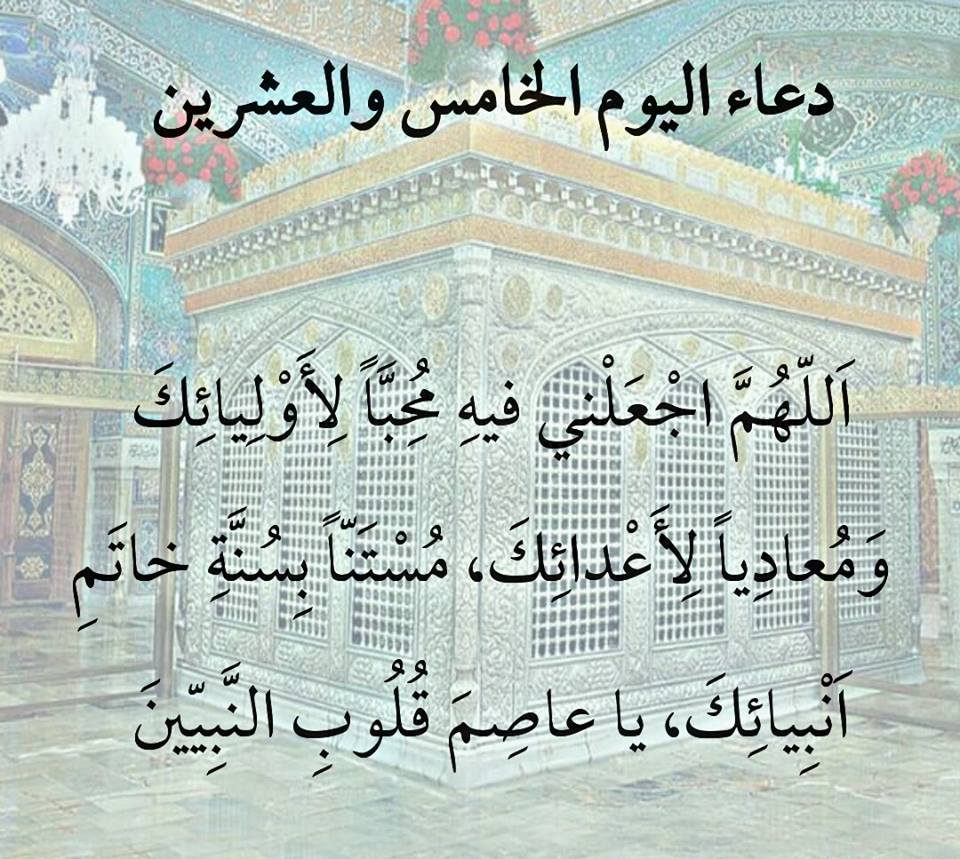 دعاء اليوم الخامس والعشرين
اَللّهُمَّ اجْعَلْني فيهِ مُحِبَّاً لِأَوْلِيائِكَ
وَمُعادِياً لِأَعْدائِكَ، مُسْتَنّاً بِسُنَّةِ خاتَمِ
اَنْبِيائِكَ، يا عاصِمَ قُلُوبِ النَّبِيّينَ